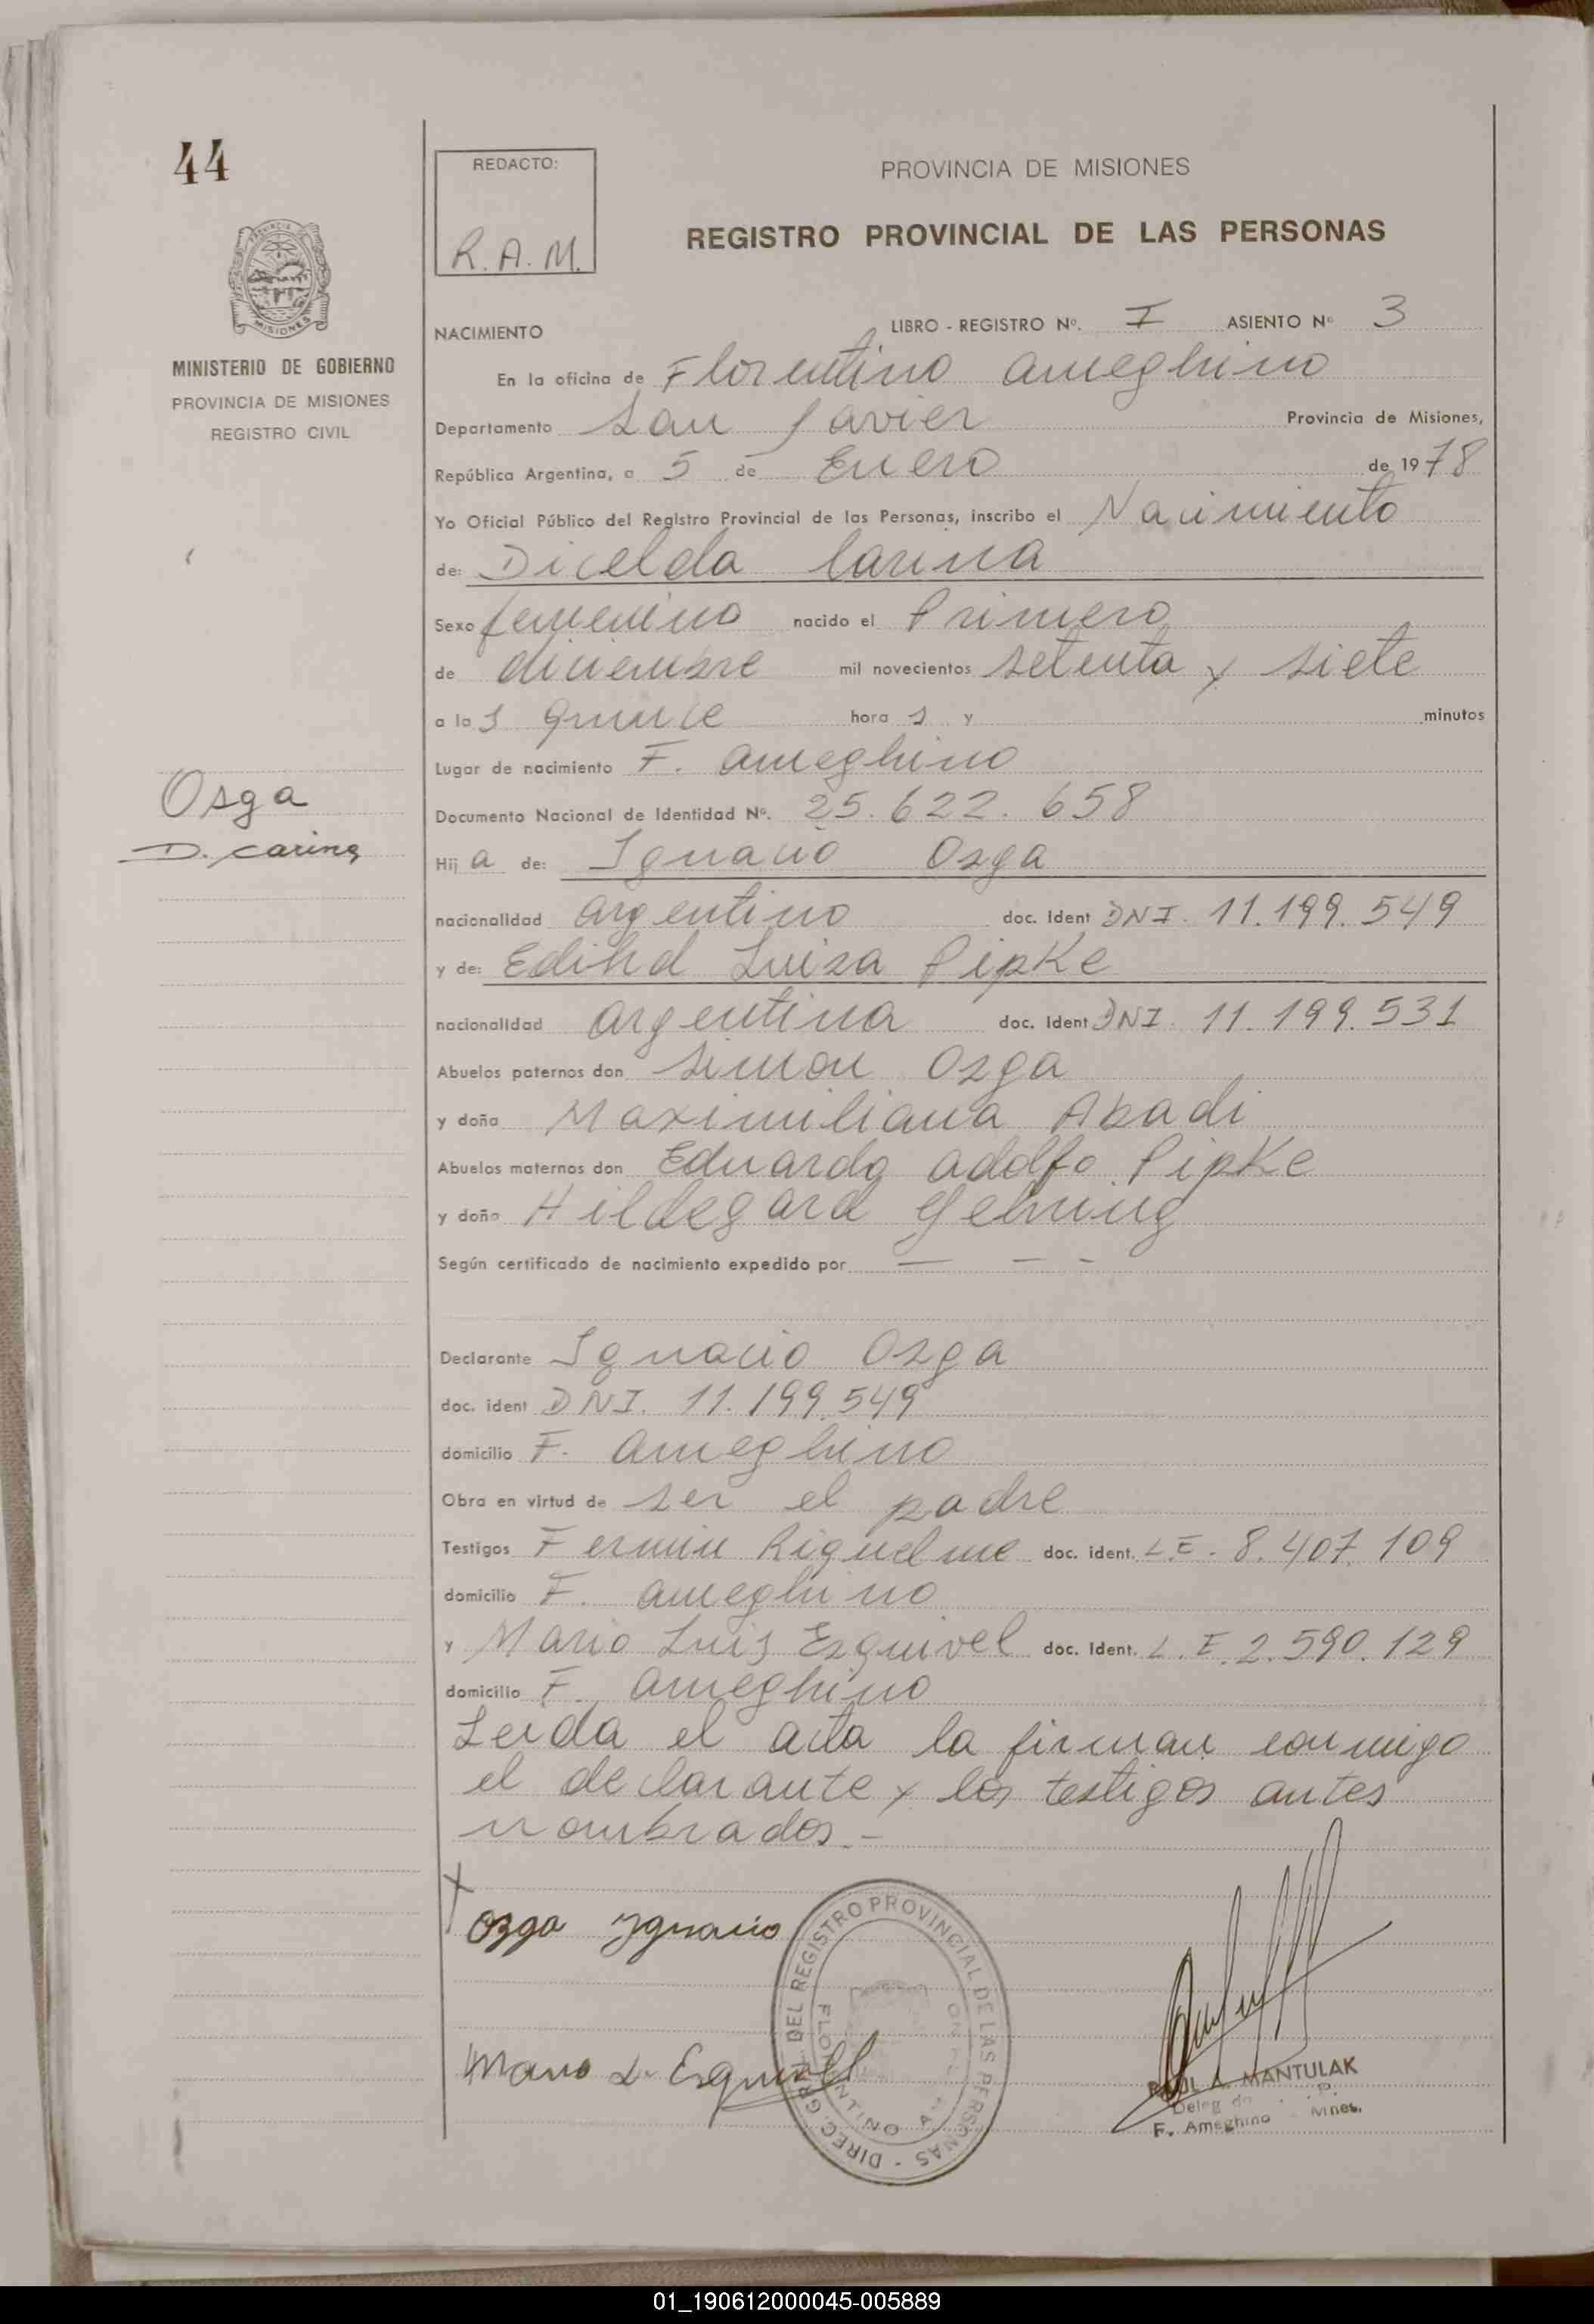 44
REDACTO:
R.A.M.
PROVINCIA DE MISIONES
REGISTRO PROVINCIAL DE LAS PERSONAS
MINISTERIO DE GOBIERNO
PROVINCIA DE MISIONES
REGISTRO CIVIL
NACIMIENTO
LIBRO - REGISTRO Nº. I ASIENTO Nº 3
En la oficina de Florentino Ameghino
Departamento San Javier Provincia de Misiones,
República Argentina, a 5 de Enero de 1978
Yo Oficial Público del Registro Provincial de las Personas, inscribo el Nacimiento
de: Dicelda Carina
Sexo femenino nacido el Primero
de diciembre mil novecientos setenta y siete
a las quince horas y minutos
Lugar de nacimiento F. Ameghino
Osga
D. carina
Documento Nacional de Identidad Nº. 25.622.658
Hija de: Ignacio Osga
nacionalidad argentino doc. Ident DNI. 11.199.549
y de: Edihd Luisa Pipke
nacionalidad argentina doc. Ident DNI. 11.199.531
Abuelos paternos don Simon Osga
y doña Maximiliana Abadi
Abuelos maternos don Eduardo Adolfo Pipke
y doña Hildegard
Según certificado de nacimiento expedido por — — -
Declarante Ignacio Osga
doc. ident DNI. 11.199.549
domicilio F. Ameghino
Obra en virtud de ser el padre
Testigos Fermin Riquelme doc. ident. L.E. 8.407.109
domicilio F. Ameghino
y Mario Luis Esquivel doc. Ident. L.E. 2.590.129
domicilio F. Ameghino
Leida el acta la firman conmigo
el declarante y los testigos antes
nombrados.-
Ozga Ygnacio
Mario L. Esquivel
DIREC. GRAL. DEL REGISTRO PROVINCIAL DE LAS PERSONAS
FLORENTINO
RAUL A. MANTULAK
Deleg de
F. Ameghino Mnes.
01_190612000045-005889